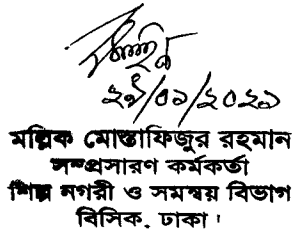 ২৯/০১/২০২১
মল্লিক মোস্তাফিজুর রহমান
সম্প্রসারণ কর্মকর্তা
শিল্প নগরী ও সমন্বয় বিভাগ
বিসিক, ঢাকা।